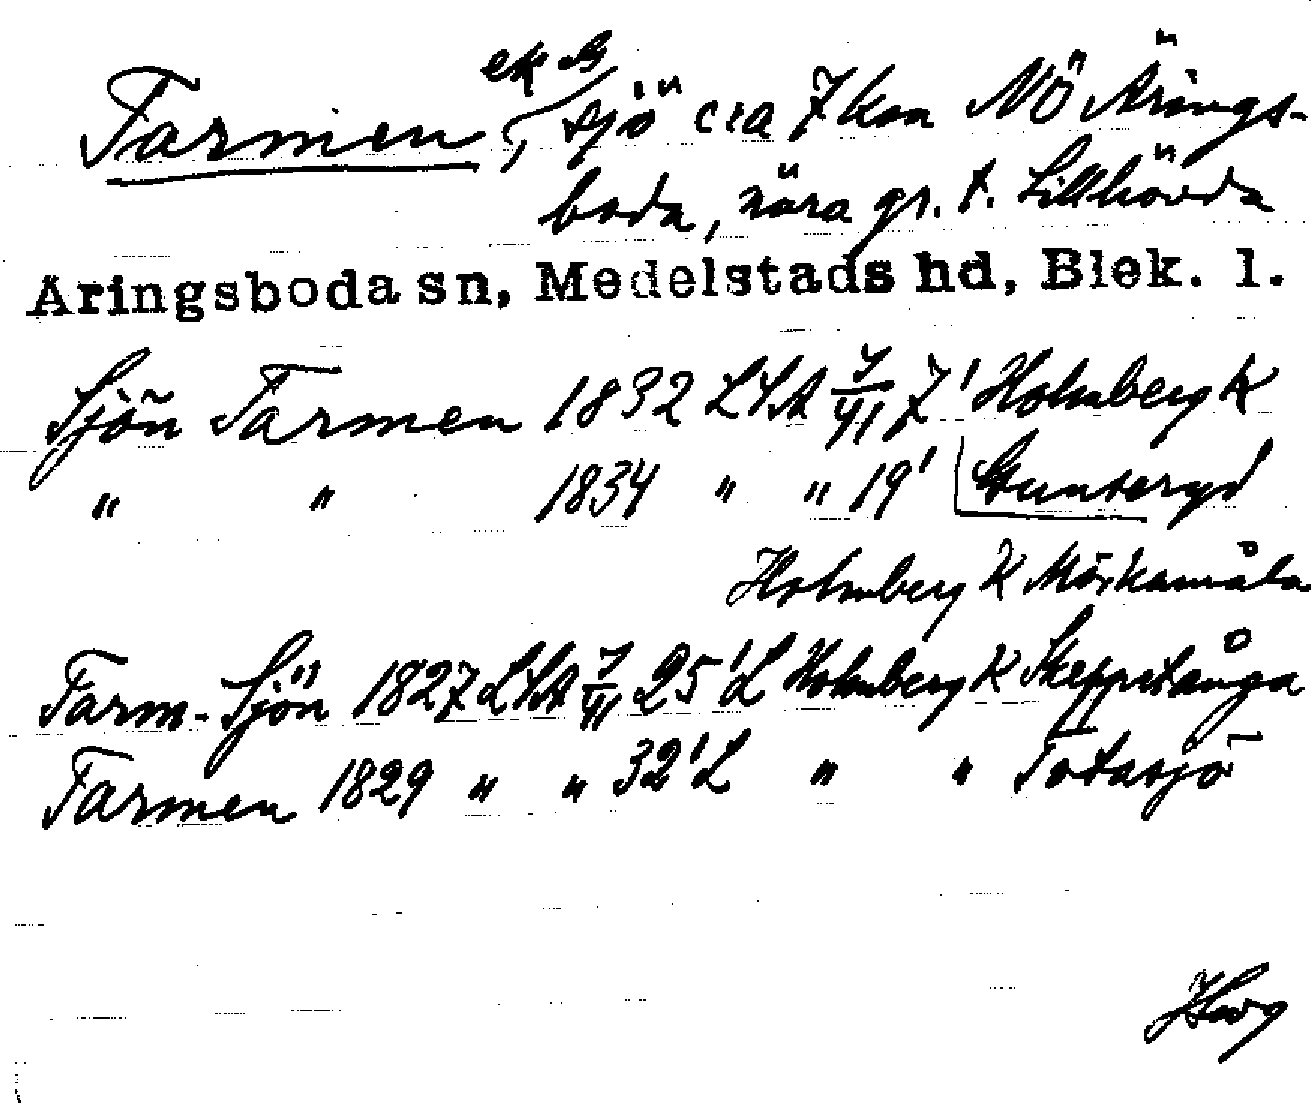 Tarmen, ek bl
sjö c:a 7 km NÖ Ärings-
boda, nära gr. t. Tillhövda
Aringsboda sn, Medelstads hd, Blek. l.
Sjön Tarmen 1832 LSA 7/VI 7' Holmberg k
" " 1834 " " 19' Gunteryd
Holmberg k Mörkamåla
Tarm-Sjön 1827 LSA 7/VI 25' L Holmberg k Skeppstånga
Tarmen 1829 " " 32' L " " Totasjö